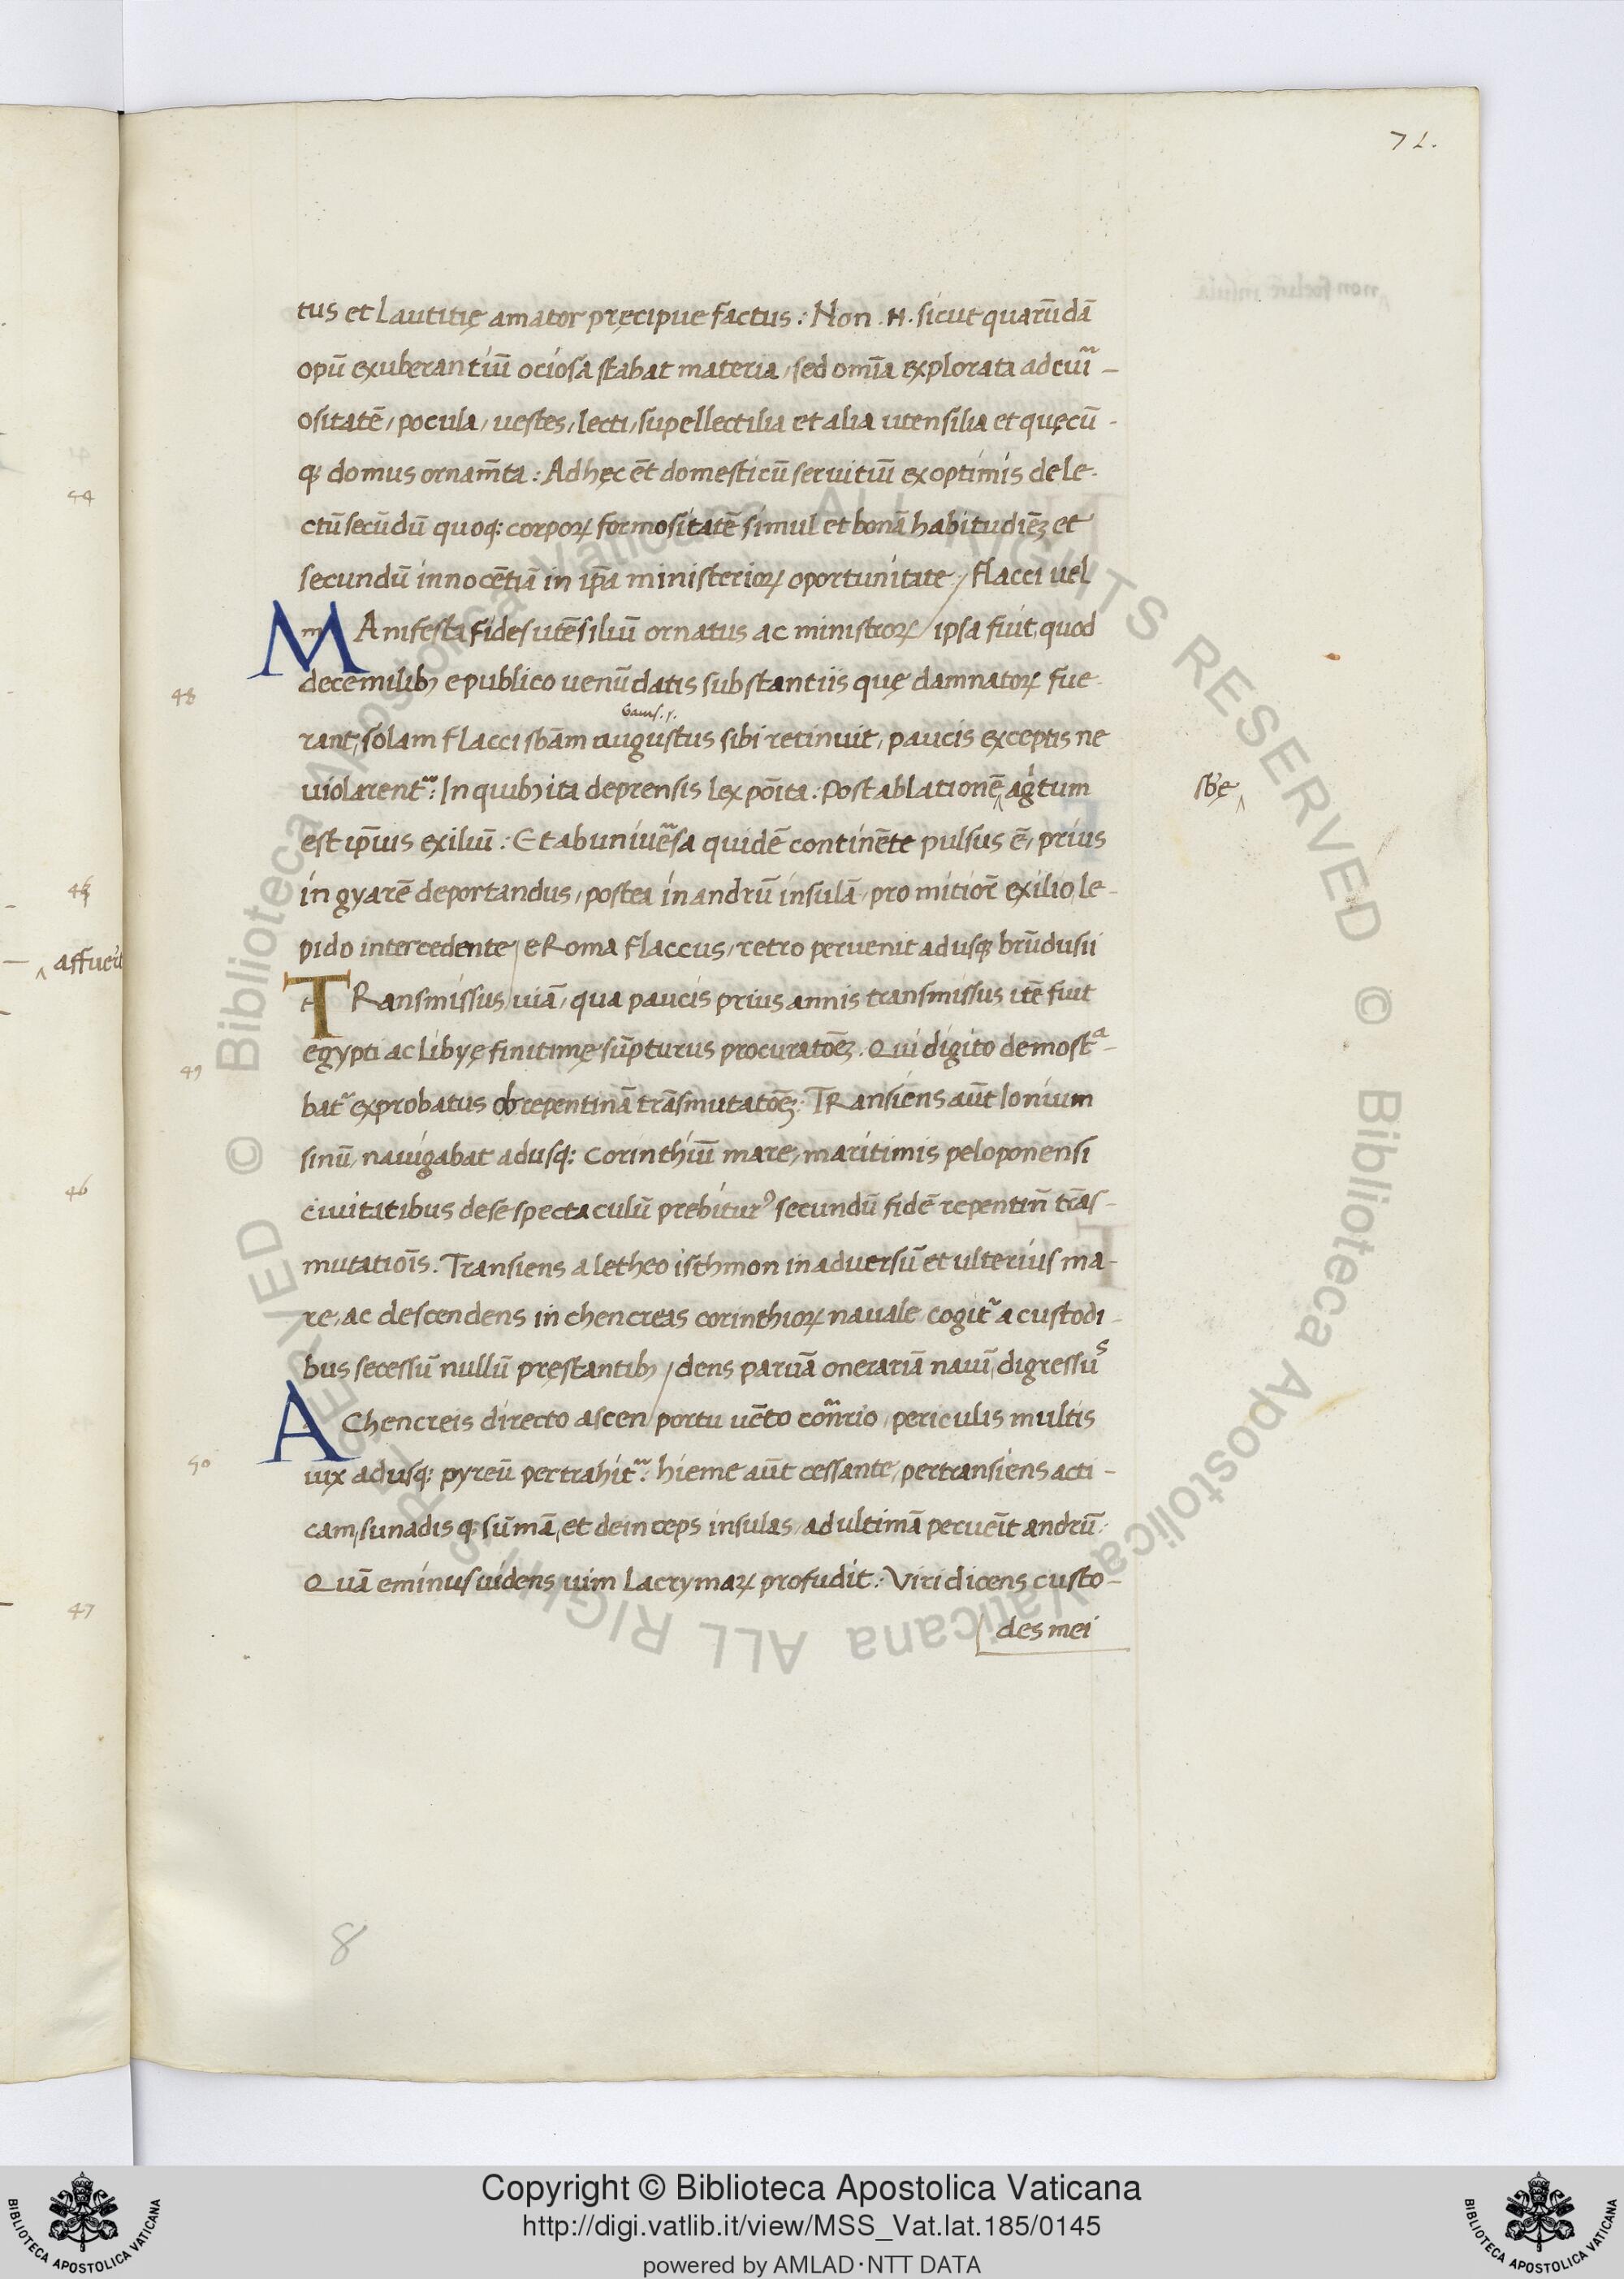 71.
tus et Lautitię amator pręcipue factus : Non .H. sicut quarūdā
opū exuberantiū ociosa stabat materia, sed om̄ia explorata ad cuiᷓ –
ositatē, pocula, uestes, lecti, supellectilia et alia utensilia et quęcū -
q; domus ornam̄ta : Ad hęc ēt domesticū seruitiū ex optimis dele-
ctū secūdū quoq; corporꝝ formositatē simul et bonā habitudiēȝ et
secundū innocētiā in ip̄a ministeriorꝝ oportunitate / Flacci uel
MAnifesta fides utēsiliū ornatus ac ministrorꝝ / ipsa fuit, quod
48
decēmilibȝ e publico uenūdatis substantiis quę damnatorꝝ fue-
rant, solam Flacci sbām augustus sibi retinuit, paucis exceptis ne
uiolarentᷓ : In quibȝ ita deprensis lex pōita : Post ablationē ‸ agitum
sbę ‸
est ip̄ius exiliū : Et ab uniuēsa quidē continēte pulsus ē, prius
in gyarē deportandus, postea in andrū insulā, pro mitiorē exilio, le-
pido intercedente / e Roma Flaccus, retro peruenit adusq; brūdusii
TRansmissus / uiā, qua paucis prius annis transmissus itē fuit
egypti ac Libyę finitimę sūpturus procuratōeȝ. Qui digito demostᵃ-
49
batᷓ exprobatus ob repentinā trāsmutatōeȝ : TRansiens aūt Ionium
sinū, nauigabat adusq; Corinthiū mare, maritimis peloponensi
ciuitatibus de se spectaculū prebiturꝰ secundū fidē repentin̄ trās-
mutatiōis. Transiens a letheo isthmon in aduersū et ulterius ma-
re, ac descendens in chencreas corinthiorꝝ nauale cogitᷓ a custodi-
bus secessū nullū pręstantibȝ / dens paruā onerariā nauī, digressuˢ
A Chencreis directo ascen / portu uēto conᷓrio, periculis multis
50
uix adusq; pyreū pertrahitᷓ : hieme aūt cessante, pertransiens acti-
cam, sunadis q; sūmā, et deinceps insulas, ad ultimā peruēit andrū :
Quā eminus uidens uim Lacrymarꝝ profudit : Viri dicens custo-
des mei
8
44
45
affuerit
46
47
Copyright © Biblioteca Apostolica Vaticana
http://digi.vatlib.it/view/MSS_Vat.lat.185/0145
powered by AMLAD·NTT DATA
BIBLIOTECA APOSTOLICA VATICANA
BIBLIOTECA APOSTOLICA VATICANA
© Biblioteca Apostolica Vaticana ALL RIGHTS RESERVED © Biblioteca Apostolica Vaticana ALL RIGHTS RESERVED